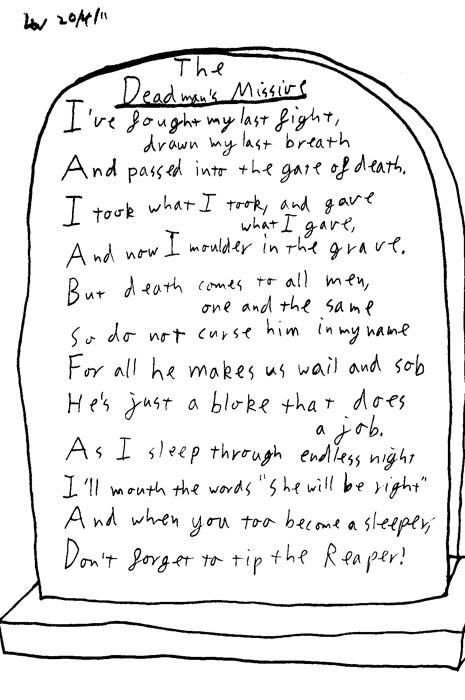 20/4/11
The
Deadman's Missive
I've fought my last fight,
drawn my last breath
And passed into the gate of death.
I took what I took, and gave
what I gave,
And now I moulder in the grave.
But death comes to all men,
one and the same
So do not curse him in my name
For all he makes us wail and sob
He's just a bloke that does
a job.
As I sleep through endless night
I'll mouth the words "she will be right"
And when you too become a sleeper,
Don't forget to tip the Reaper!